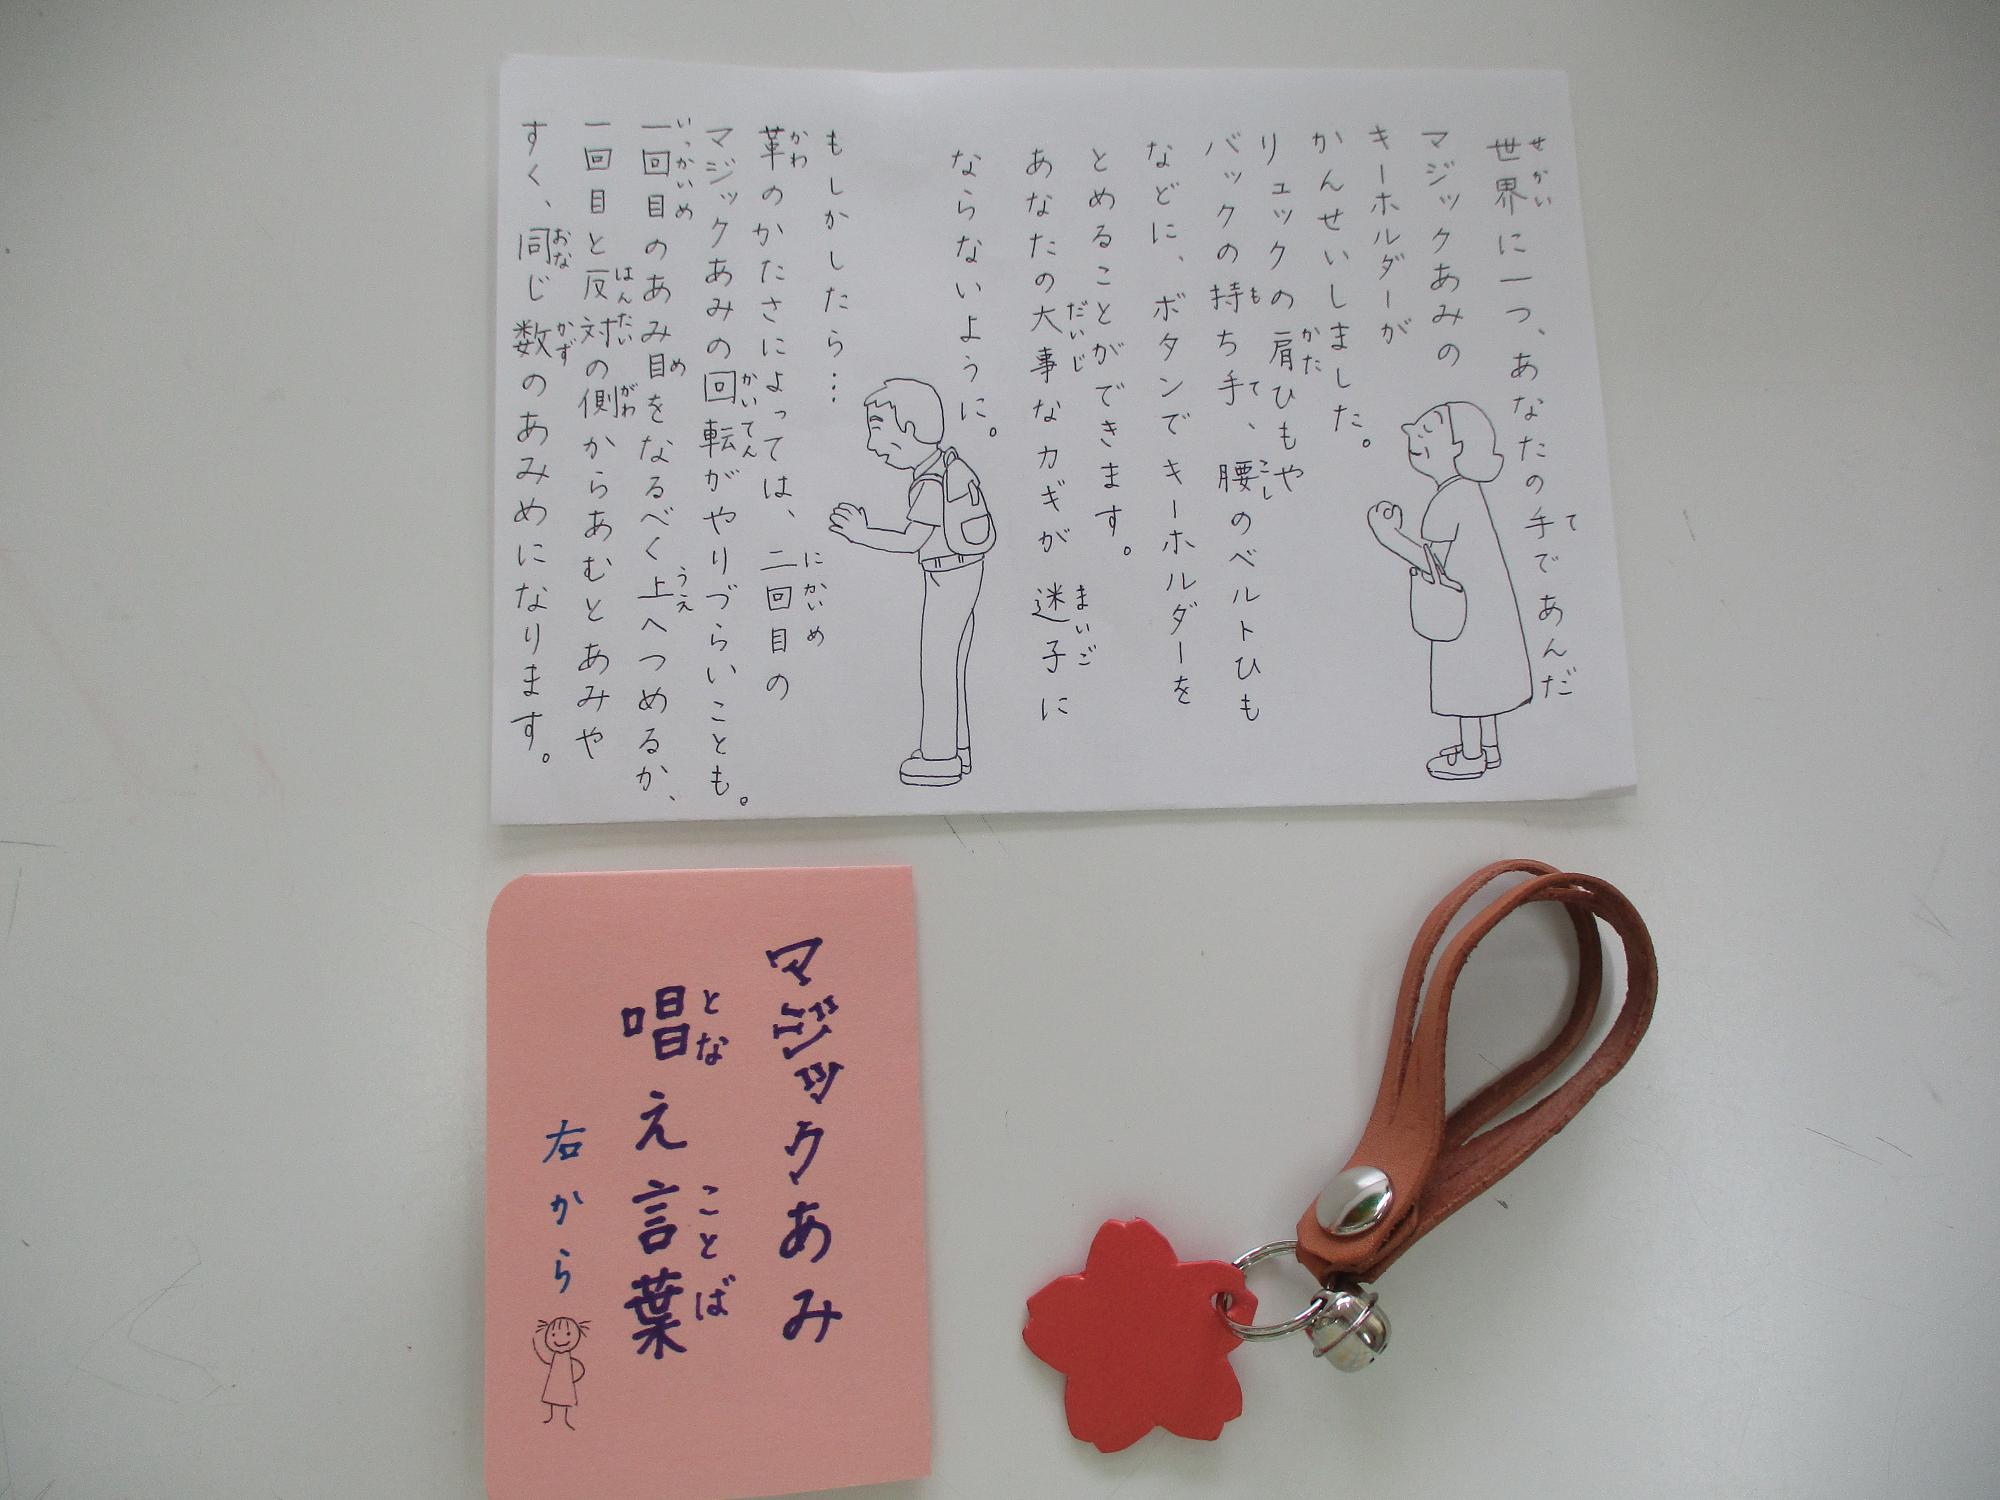 世界に一つ、あなたの手であんだ
せかい
て
マジックあみの
キーホルダーが
かんせいしました。
リュックの肩ひもや
かた
バックの持ち手、腰のベルトひも
も
て
こし
などに、ボタンでキーホルダーを
とめることができます。
あなたの大事なカギが迷子に
だいじ
まいご
ならないように。
もしかしたら…
革のかたさによっては、二回目の
かわ
にかいめ
マジックあみの回転がやりづらいことも。
かいてん
一回目のあみ目をなるべく上へつめるか、
いっかいめ
め
うえ
一回目と反対の側からあむとあみや
はんたい
がわ
すく、同じ数のあみめになります。
おな
かず
マジックあみ
唱え言葉
とな
ことば
右から